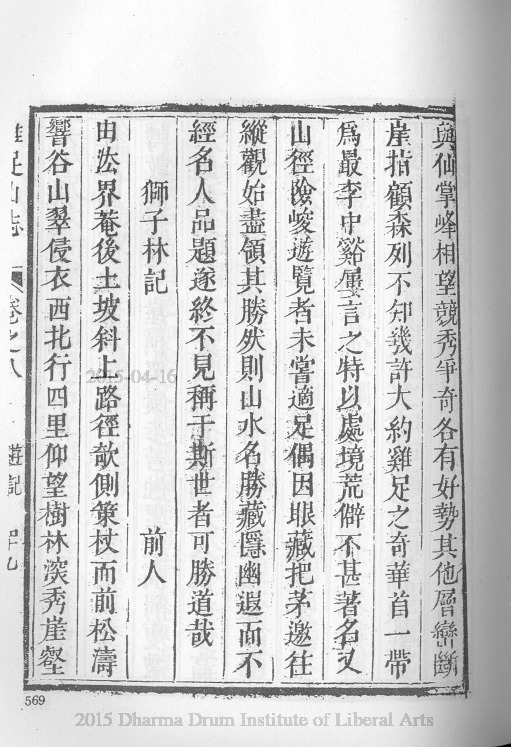 與仙掌峰相望競秀爭奇各有好勢其他層巒斷
崖指顧森列不知幾許大約雞足之奇華首一帶
爲最李中谿屢言之特以處境荒僻不甚著名又
山徑險峻遊覽者未嘗適足偶因眼藏把茅邀往
縱觀始盡領其勝然則山水名勝藏隱幽遐而不
經名人品題遂終不見稱于斯世者可勝道哉
獅子林記 前人
由法界菴後土坡斜上路徑欹側策杖而前松濤
響谷山翠侵衣西北行四里仰望樹林深秀崖壑
雞足山志 卷之八 遊記
569
2015-04-16
2015 Dharma Drum Institute of Liberal Arts